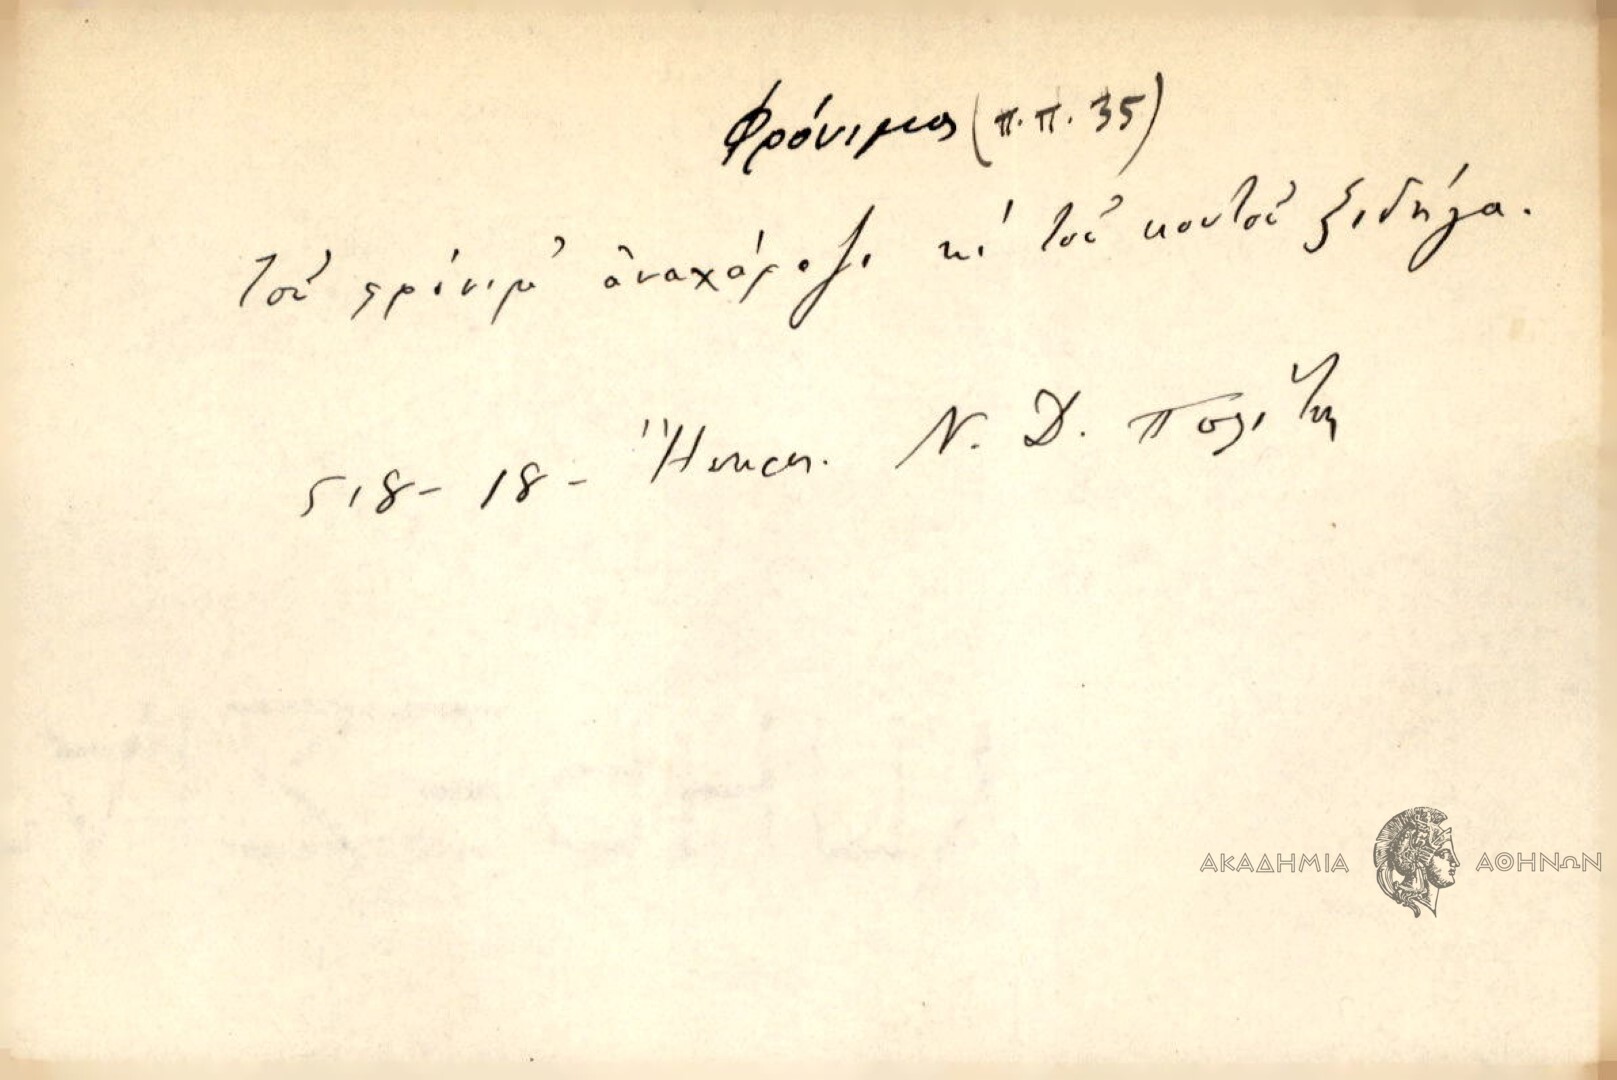 Φρόνιμος (π.π. 35)
Τοῦ φρόνιμ' ἀναχάραζι κὶ τοῦ κουτοῦ ξιδήγα.
518 - 18 - Ἤπειρ. Ν. Δ. Πολίτη
ΑΚΑΔΗΜΙΑ ΑΘΗΝΩΝ